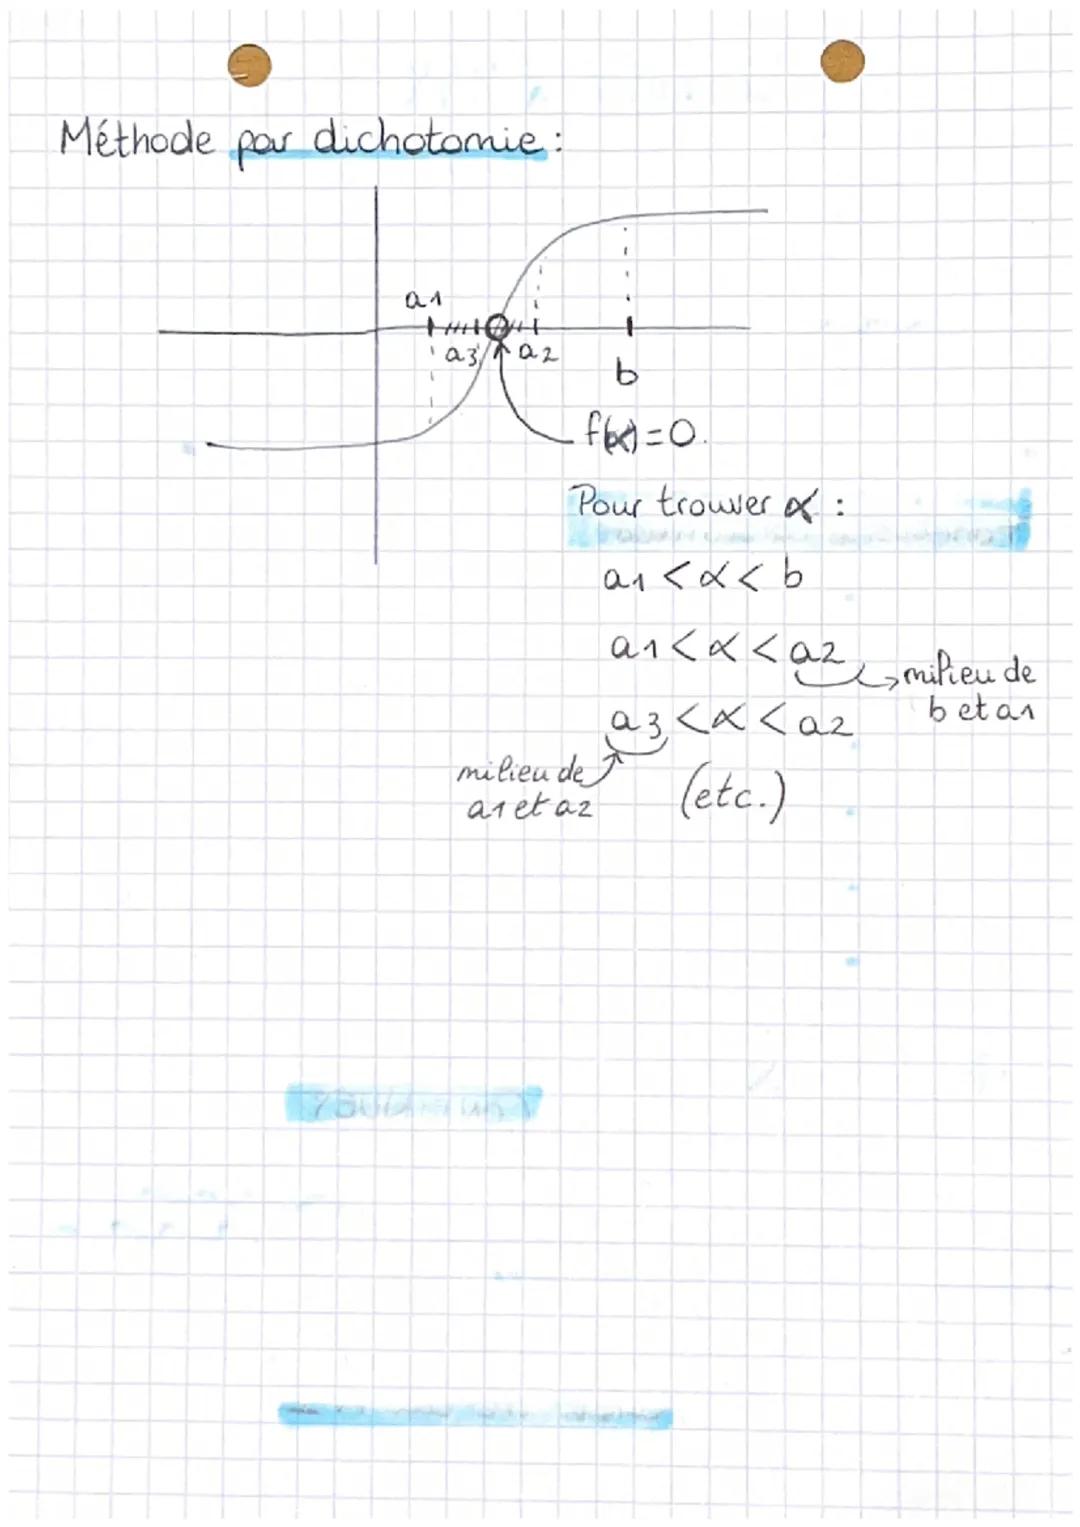 Méthode par dichotomie :
a1
a3 a2
b
f(α)=0.
Pour trouver α :
a1 < α < b
a1 < α < a2 milieu de
b et a1
a3 < α < a2
milieu de
a1 et a2 (etc.)